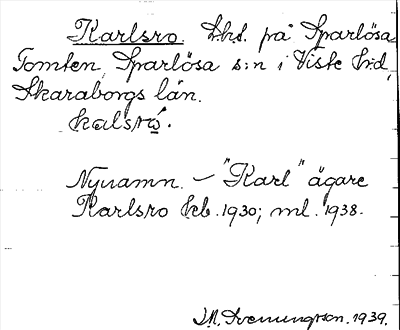 Karlsro. Lhs. på Sparlösa
Tomten, Sparlösa s:n i Viste hd,
Skaraborgs län.
kalsrō.
Nynamn. – "Karl" ägare
Karlsro kb. 1930; ml. 1938.
Svenungsson. 1939.